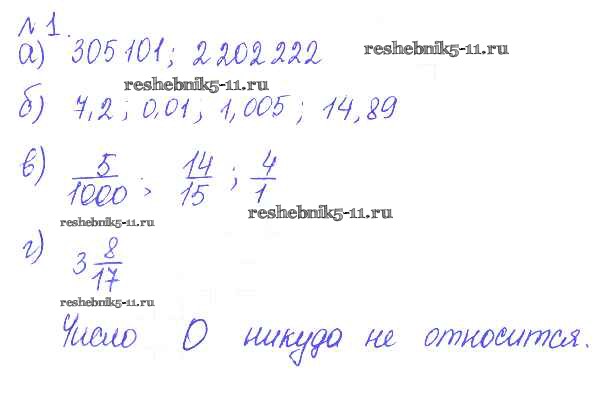 № 1.
а) 305 101; 2 202 222
reshebnik5-11.ru
reshebnik5-11.ru
б) 7,2; 0,01; 1,005; 14,89
в) 5/1000; 14/15; 4/1
reshebnik5-11.ru
reshebnik5-11.ru
г) 3 8/17
reshebnik5-11.ru
Число 0 никуда не относится.